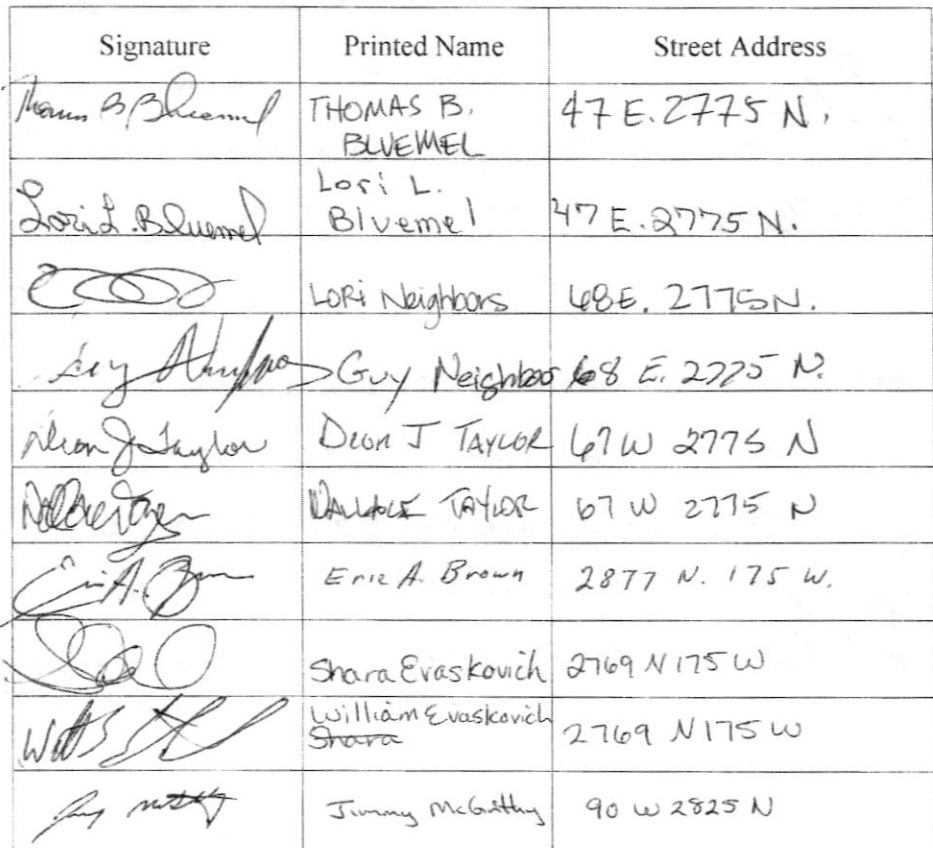 Signature Printed Name Street Address
Thomas B Bluemel THOMAS B. 47 E. 2775 N.
BLUEMEL
Lori L.
Lori L. Bluemel Bluemel 47 E. 2775 N.
LORi Neighbors 68 E. 2775 N.
Guy Guy Neighbors 68 E. 2775 N.
Deon J Taylor Deon J TAYLOR 67 W 2775 N
WALLACE TAYLOR 67 W 2775 N
Eric A. Brown Eric A. Brown 2877 N. 175 W.
Shara Evaskovich 2769 N 175 W
William Evaskovich
Shara 2769 N 175 W
Jimmy 90 W 2825 N